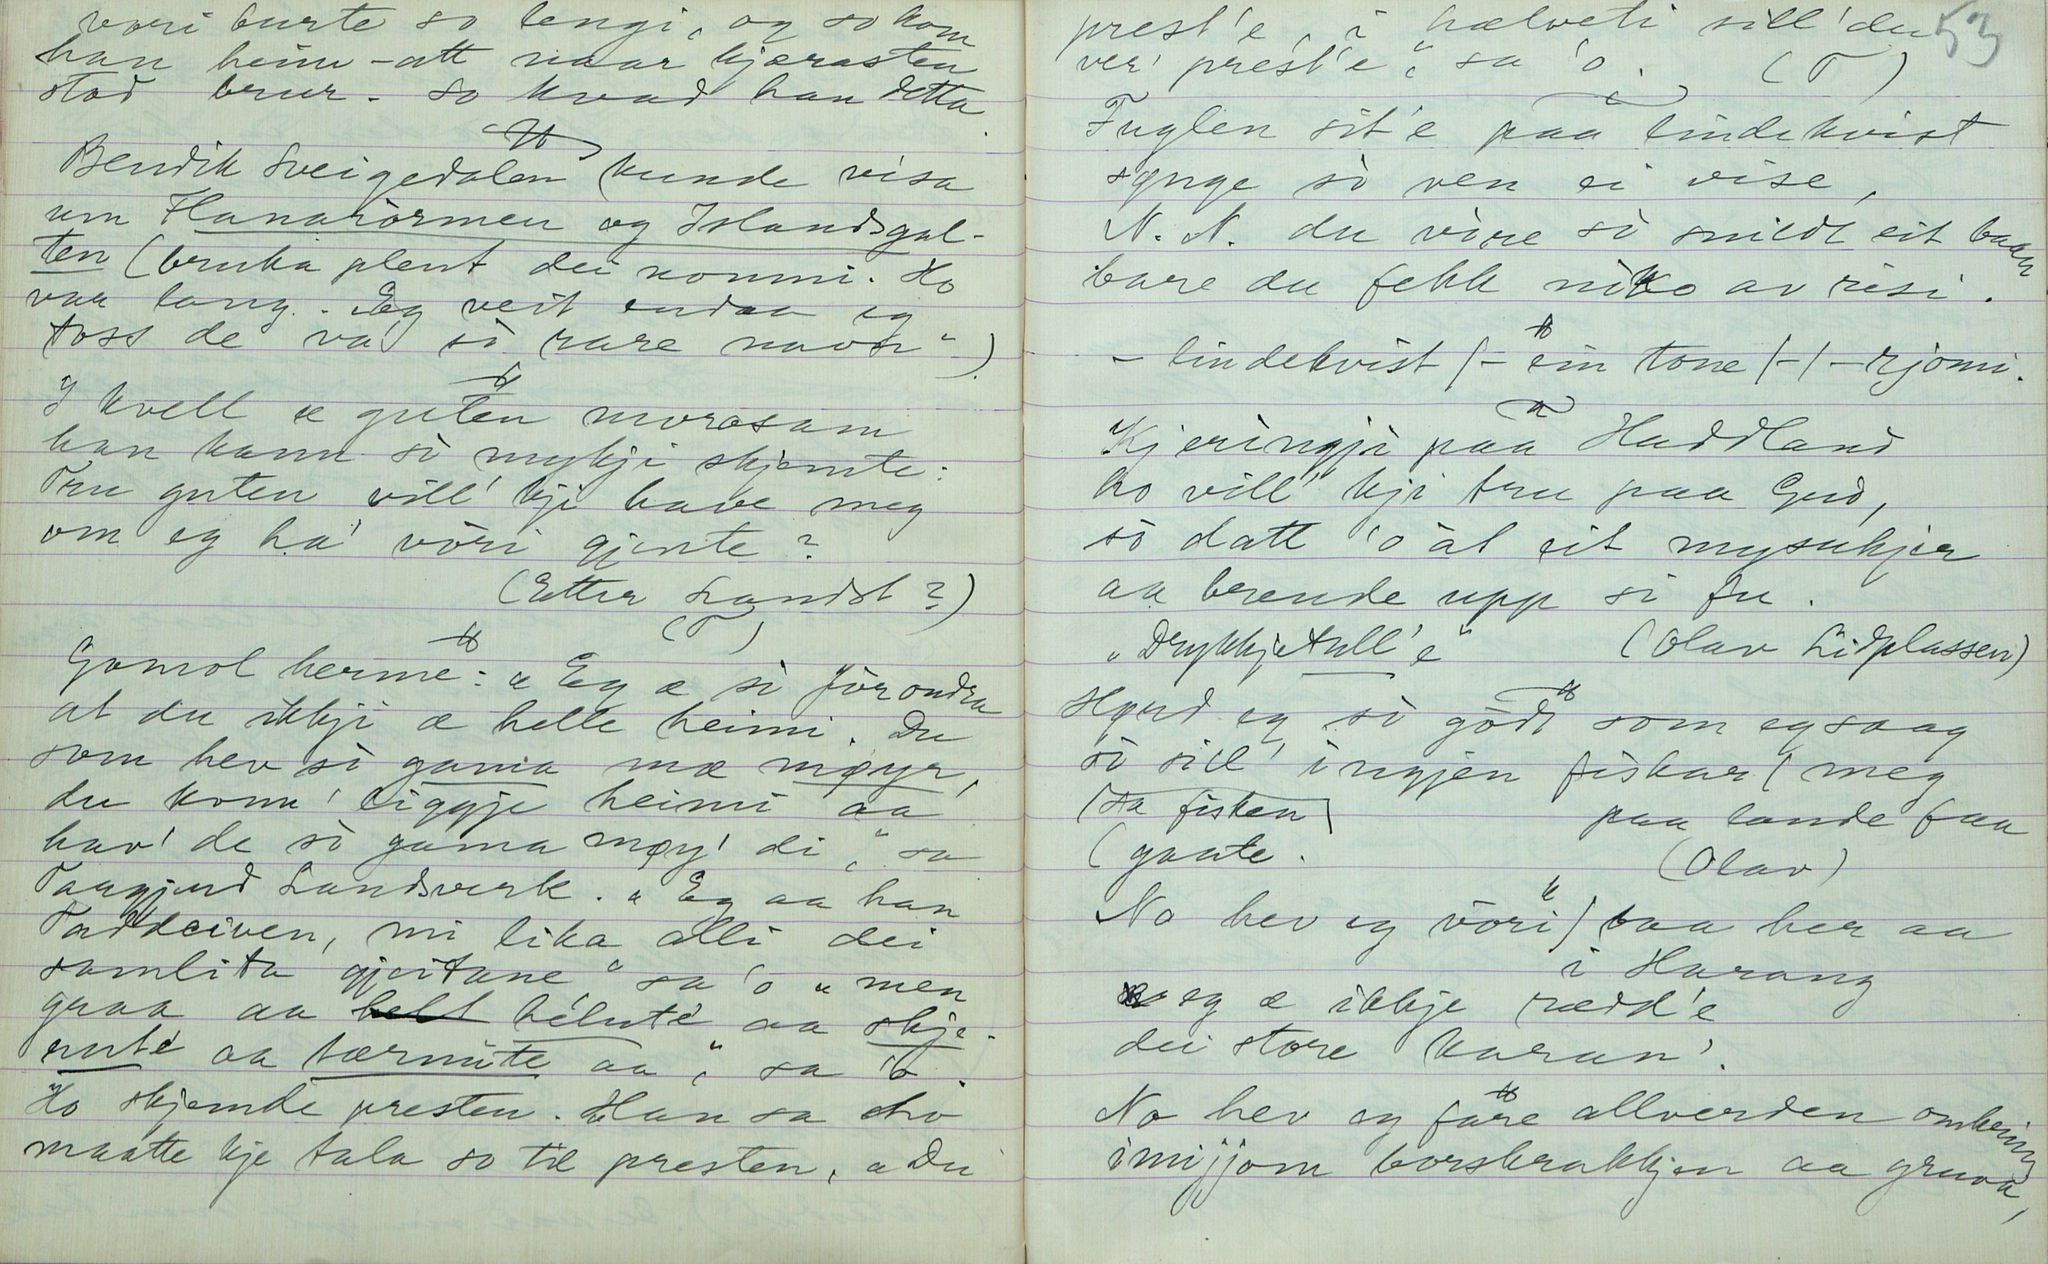 vori burte so lengi, og so kom
han heim-att naar kjærasten
stod brur. So kvad han detta.
Bendik Sveigedalen kunde visa
um Hanarormen og Islandsgal-
ten (bruka plent dei nonni. Ho
var lang. "Eg veit endaa eg
toss de va' så rare navn")
I kvell æ guten morosam
han kann så mykji skjemte:
Tru guten vill' kji have meg
om eg ha' vòri gjente?
(Etter Landst?)
(T)
Gamol herme: "Eg æ så fòrondra
at du ikkji æ helle heimi. Du
som hev så gama mæ møyr,
du konn' liggje heimi aa
hav' de så gama møy' di," sa
Taagjerd Landsverk. "Eg aa han
Taddeiven, mi lika alli dei
samlita gjeitane" sa 'o "men
graa aa hèlute aa skje-
nute aa tærnute aa," sa 'o.
Ho skjemde presten. Han sa ho
maatte kje tala so til presten. "Du
53
prest'e, i hælveti sill' du
ver' prest'e", sa 'o. (T)
Fuglen sit'e paa lindekvist
synge så ven ei vise,
N. N. du vòre så snildt eit baan
bare du fekk niko av risi.
- lindekvist / - ein tone / - / - rjomi.
Kjeringji paa Haddland
ho vill' kji tru paa Gud,
så datt 'o åt eit mysukjer
aa brende upp si fu.
"Drykkjetull'e" (Olav Lidplassen)
Høyrd eg så gödt som eg saag
så sill' ingjen fiskar / meg
(sa fisken) paa lande faa
(gaate. (Olav)
No hev eg vöri / baa her aa
i Harang
eg æ ikkje rædd'e
dei store karan'.
No hev eg fare allverden omkring
imijjom borskrakkjen aa gruva,